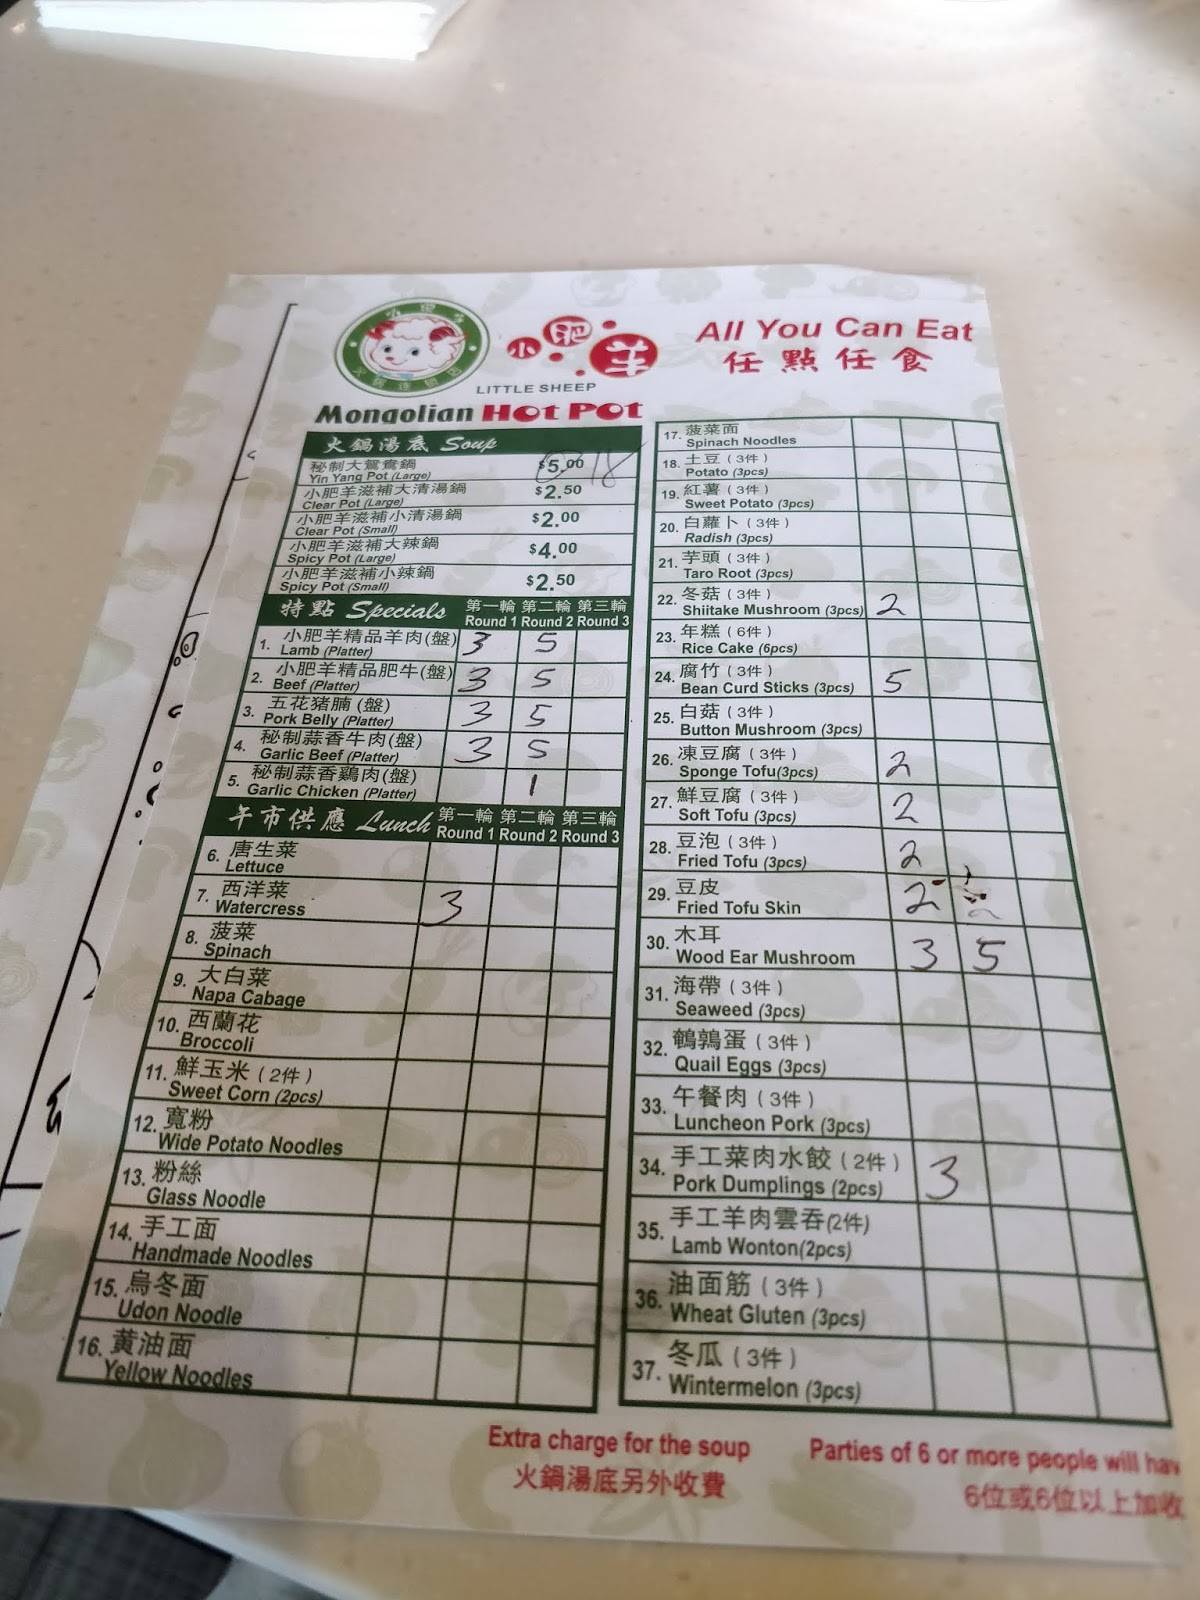 小肥羊
火鍋連鎖店
小肥羊
LITTLE SHEEP
All You Can Eat
任點任食
Mongolian Hot Pot
火鍋湯底 Soup
秘制大鴛鴦鍋 $5.00
Yin Yang Pot (Large)
小肥羊滋補大清湯鍋 $2.50
Clear Pot (Large)
小肥羊滋補小清湯鍋 $2.00
Clear Pot (Small)
小肥羊滋補大辣鍋 $4.00
Spicy Pot (Large)
小肥羊滋補小辣鍋 $2.50
Spicy Pot (Small)
特點 Specials 第一輪 第二輪 第三輪
Round 1 Round 2 Round 3
1. 小肥羊精品羊肉(盤) 3 5
Lamb (Platter)
2. 小肥羊精品肥牛(盤) 3 5
Beef (Platter)
3. 五花猪腩 (盤) 3 5
Pork Belly (Platter)
4. 秘制蒜香牛肉(盤) 3 5
Garlic Beef (Platter)
5. 秘制蒜香鷄肉(盤) 1
Garlic Chicken (Platter)
午市供應 Lunch 第一輪 第二輪 第三輪
Round 1 Round 2 Round 3
6. 唐生菜
Lettuce
7. 西洋菜 3
Watercress
8. 菠菜
Spinach
9. 大白菜
Napa Cabage
10. 西蘭花
Broccoli
11. 鮮玉米 (2件)
Sweet Corn (2pcs)
12. 寬粉
Wide Potato Noodles
13. 粉絲
Glass Noodle
14. 手工面
Handmade Noodles
15. 烏冬面
Udon Noodle
16. 黄油面
Yellow Noodles
17. 菠菜面
Spinach Noodles
18. 土豆 (3件)
Potato (3pcs)
19. 紅薯 (3件)
Sweet Potato (3pcs)
20. 白蘿卜 (3件)
Radish (3pcs)
21. 芋頭 (3件)
Taro Root (3pcs)
22. 冬菇 (3件) 2
Shiitake Mushroom (3pcs)
23. 年糕 (6件)
Rice Cake (6pcs)
24. 腐竹 (3件) 5
Bean Curd Sticks (3pcs)
25. 白菇 (3件)
Button Mushroom (3pcs)
26. 凍豆腐 (3件) 2
Sponge Tofu(3pcs)
27. 鮮豆腐 (3件) 2
Soft Tofu (3pcs)
28. 豆泡 (3件) 2
Fried Tofu (3pcs)
29. 豆皮 2
Fried Tofu Skin
30. 木耳 3 5
Wood Ear Mushroom
31. 海帶 (3件)
Seaweed (3pcs)
32. 鵪鶉蛋 (3件)
Quail Eggs (3pcs)
33. 午餐肉 (3件)
Luncheon Pork (3pcs)
34. 手工菜肉水餃 (2件) 3
Pork Dumplings (2pcs)
35. 手工羊肉雲吞(2件)
Lamb Wonton(2pcs)
36. 油面筋 (3件)
Wheat Gluten (3pcs)
37. 冬瓜 (3件)
Wintermelon (3pcs)
Extra charge for the soup
火鍋湯底另外收費
Parties of 6 or more people will hav
6位或6位以上加收